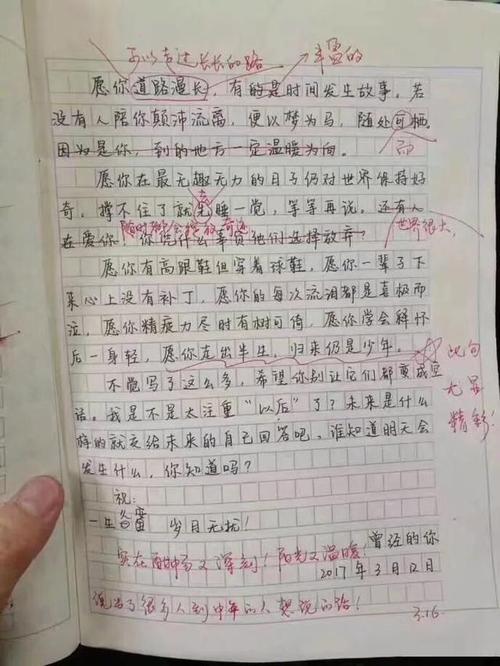 可以走过长长的路 丰盈的
愿你道路漫长，有的是时间发生故事。若
没有人陪你颠沛流离，便以梦为马，随处可栖。
因为是你，到的地方一定温暖为向。 而
愿你在最无趣无力的日子仍对世界保持好
去
奇。撑不住了就先睡一觉，等等再说。还有人
随时都会 奇迹
在爱你，你凭什么事赏他们选择放弃？ 世界很大，
愿你有高跟鞋但穿着球鞋，愿你一辈子下
来心上没有补丁，愿你的每次流泪都是喜极而
泣，愿你精疲力尽时有树可倚，愿你学会释怀
后一身轻，愿你走出半生，归来仍是少年。 此句
不觉写了这么多，希望你别让它们都变成空 尤显
话。我是不是太注重“以后”了？未来是什么 精彩
样的就交给未来的自己回答吧，谁知道明天会
发生什么，你知道吗？
祝：
一生 岁月无扰！
实在 又深刻！阳光又温暖， 曾经的你
2017年3月12日
说出了很多人到中年的人想说的路！ 3.16